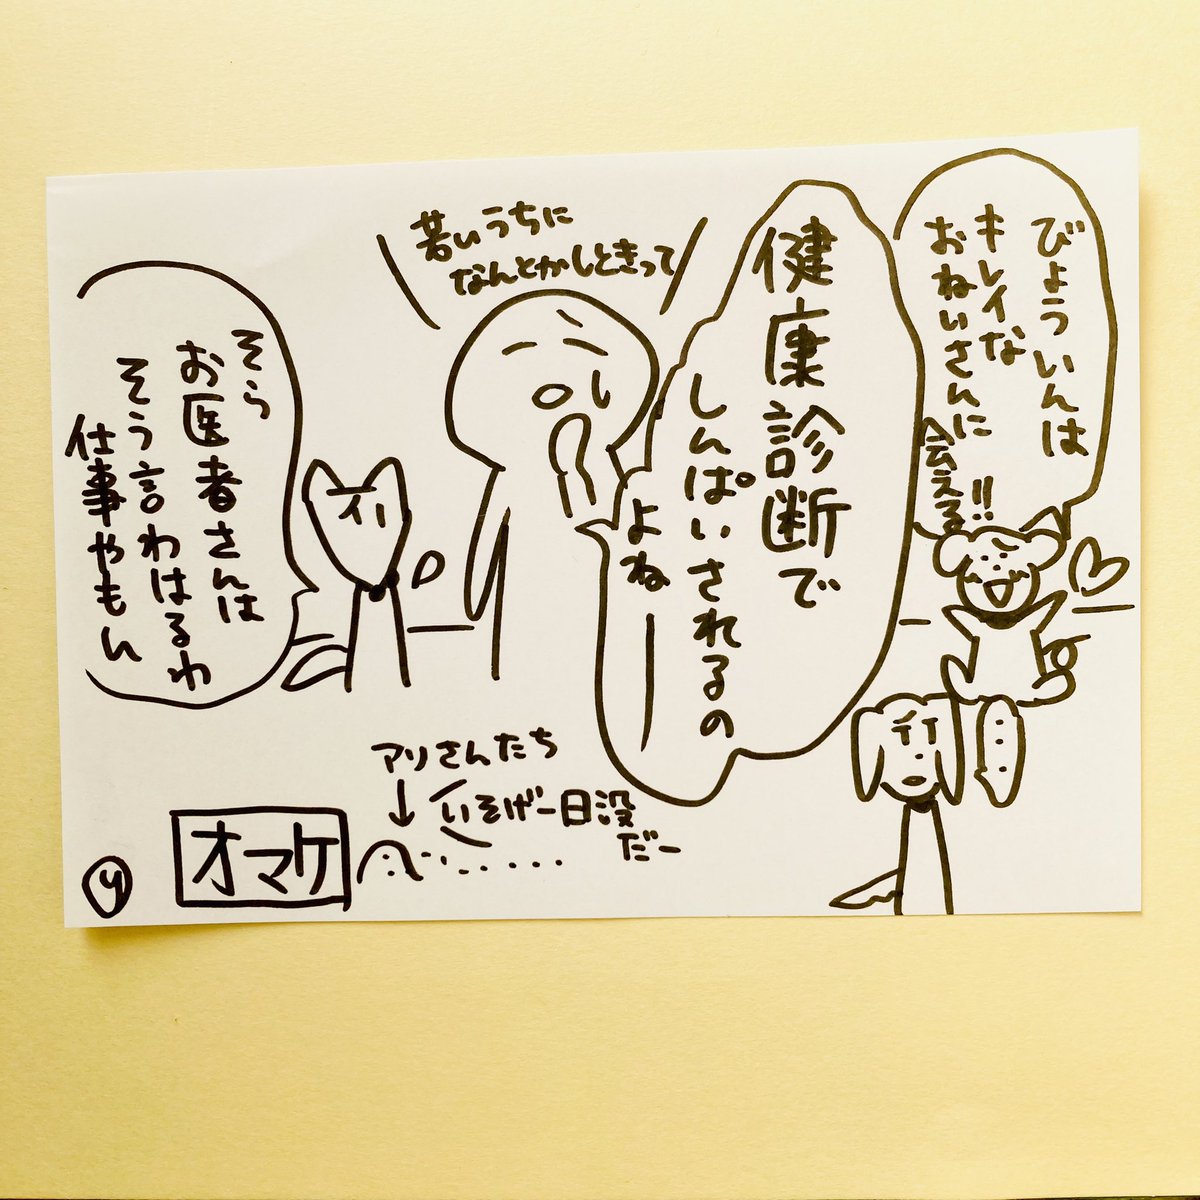 びょういんは
キレイな
おねいさんに
会える!!
健康診断で
しんぱいされるの
よねー
若いうちに
なんとかしときって
そら
お医者さんは
そう言わはるわ
仕事やもん
……
アリさんたち
いそげー日没
だー
オマケ